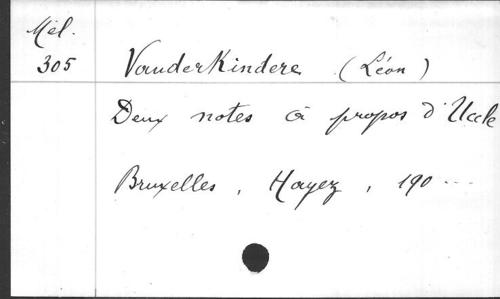 Mél.
305 Vanderkindere (Léon)
Deux notes à propos d'Uccle
Bruxelles, Hayez, 190...